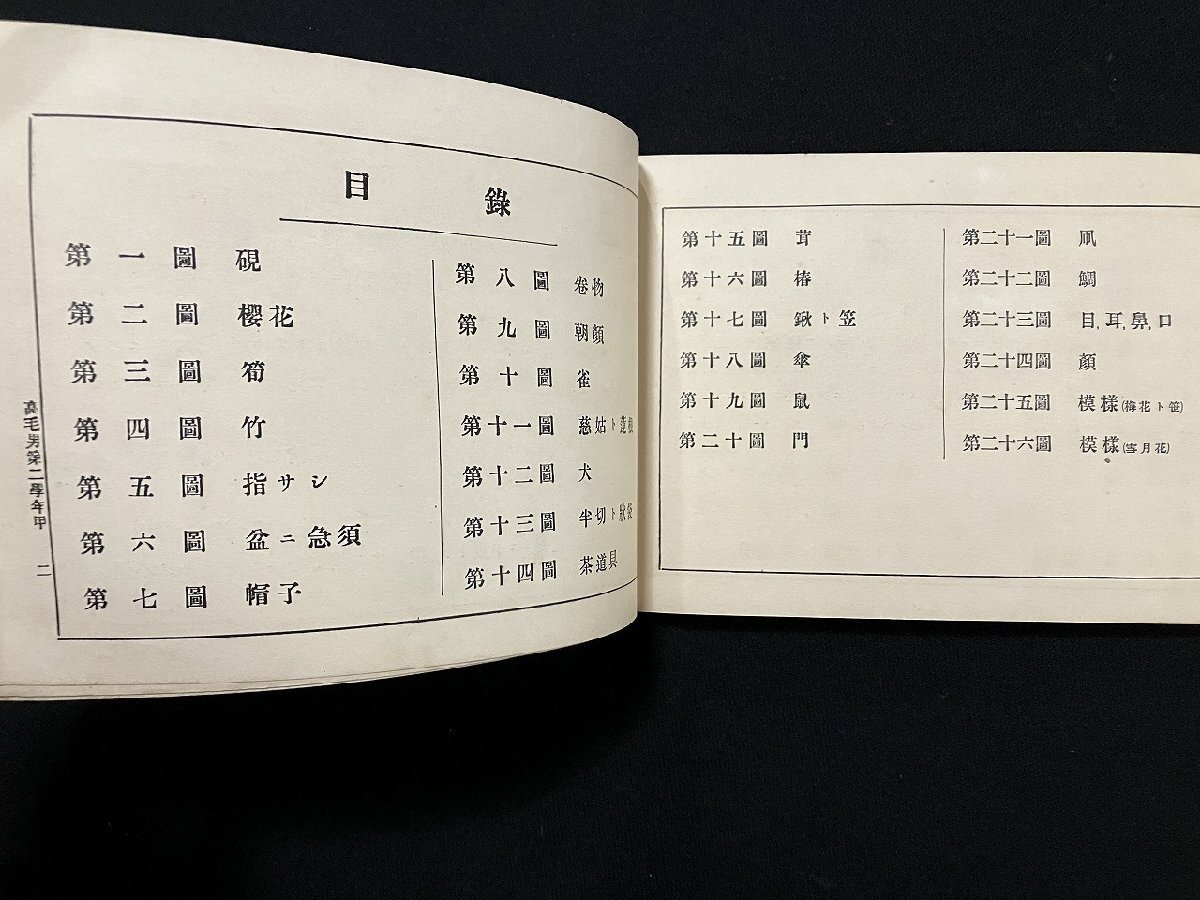 目錄
第一圖 硯
第二圖 櫻花
第三圖 筍
第四圖 竹
第五圖 指サシ
第六圖 盆ニ急須
第七圖 帽子
第八圖 卷物
第九圖 朝顏
第十圖 雀
第十一圖 慈姑ト蓮根
第十二圖 犬
第十三圖 半切ト狀袋
第十四圖 茶道具
高毛男第二學年甲
二
第十五圖 茸
第十六圖 椿
第十七圖 鍬ト笠
第十八圖 傘
第十九圖 鼠
第二十圖 門
第二十一圖 凧
第二十二圖 鯛
第二十三圖 目,耳,鼻,口
第二十四圖 顏
第二十五圖 模樣(梅花ト笹)
第二十六圖 模樣(雪月花)